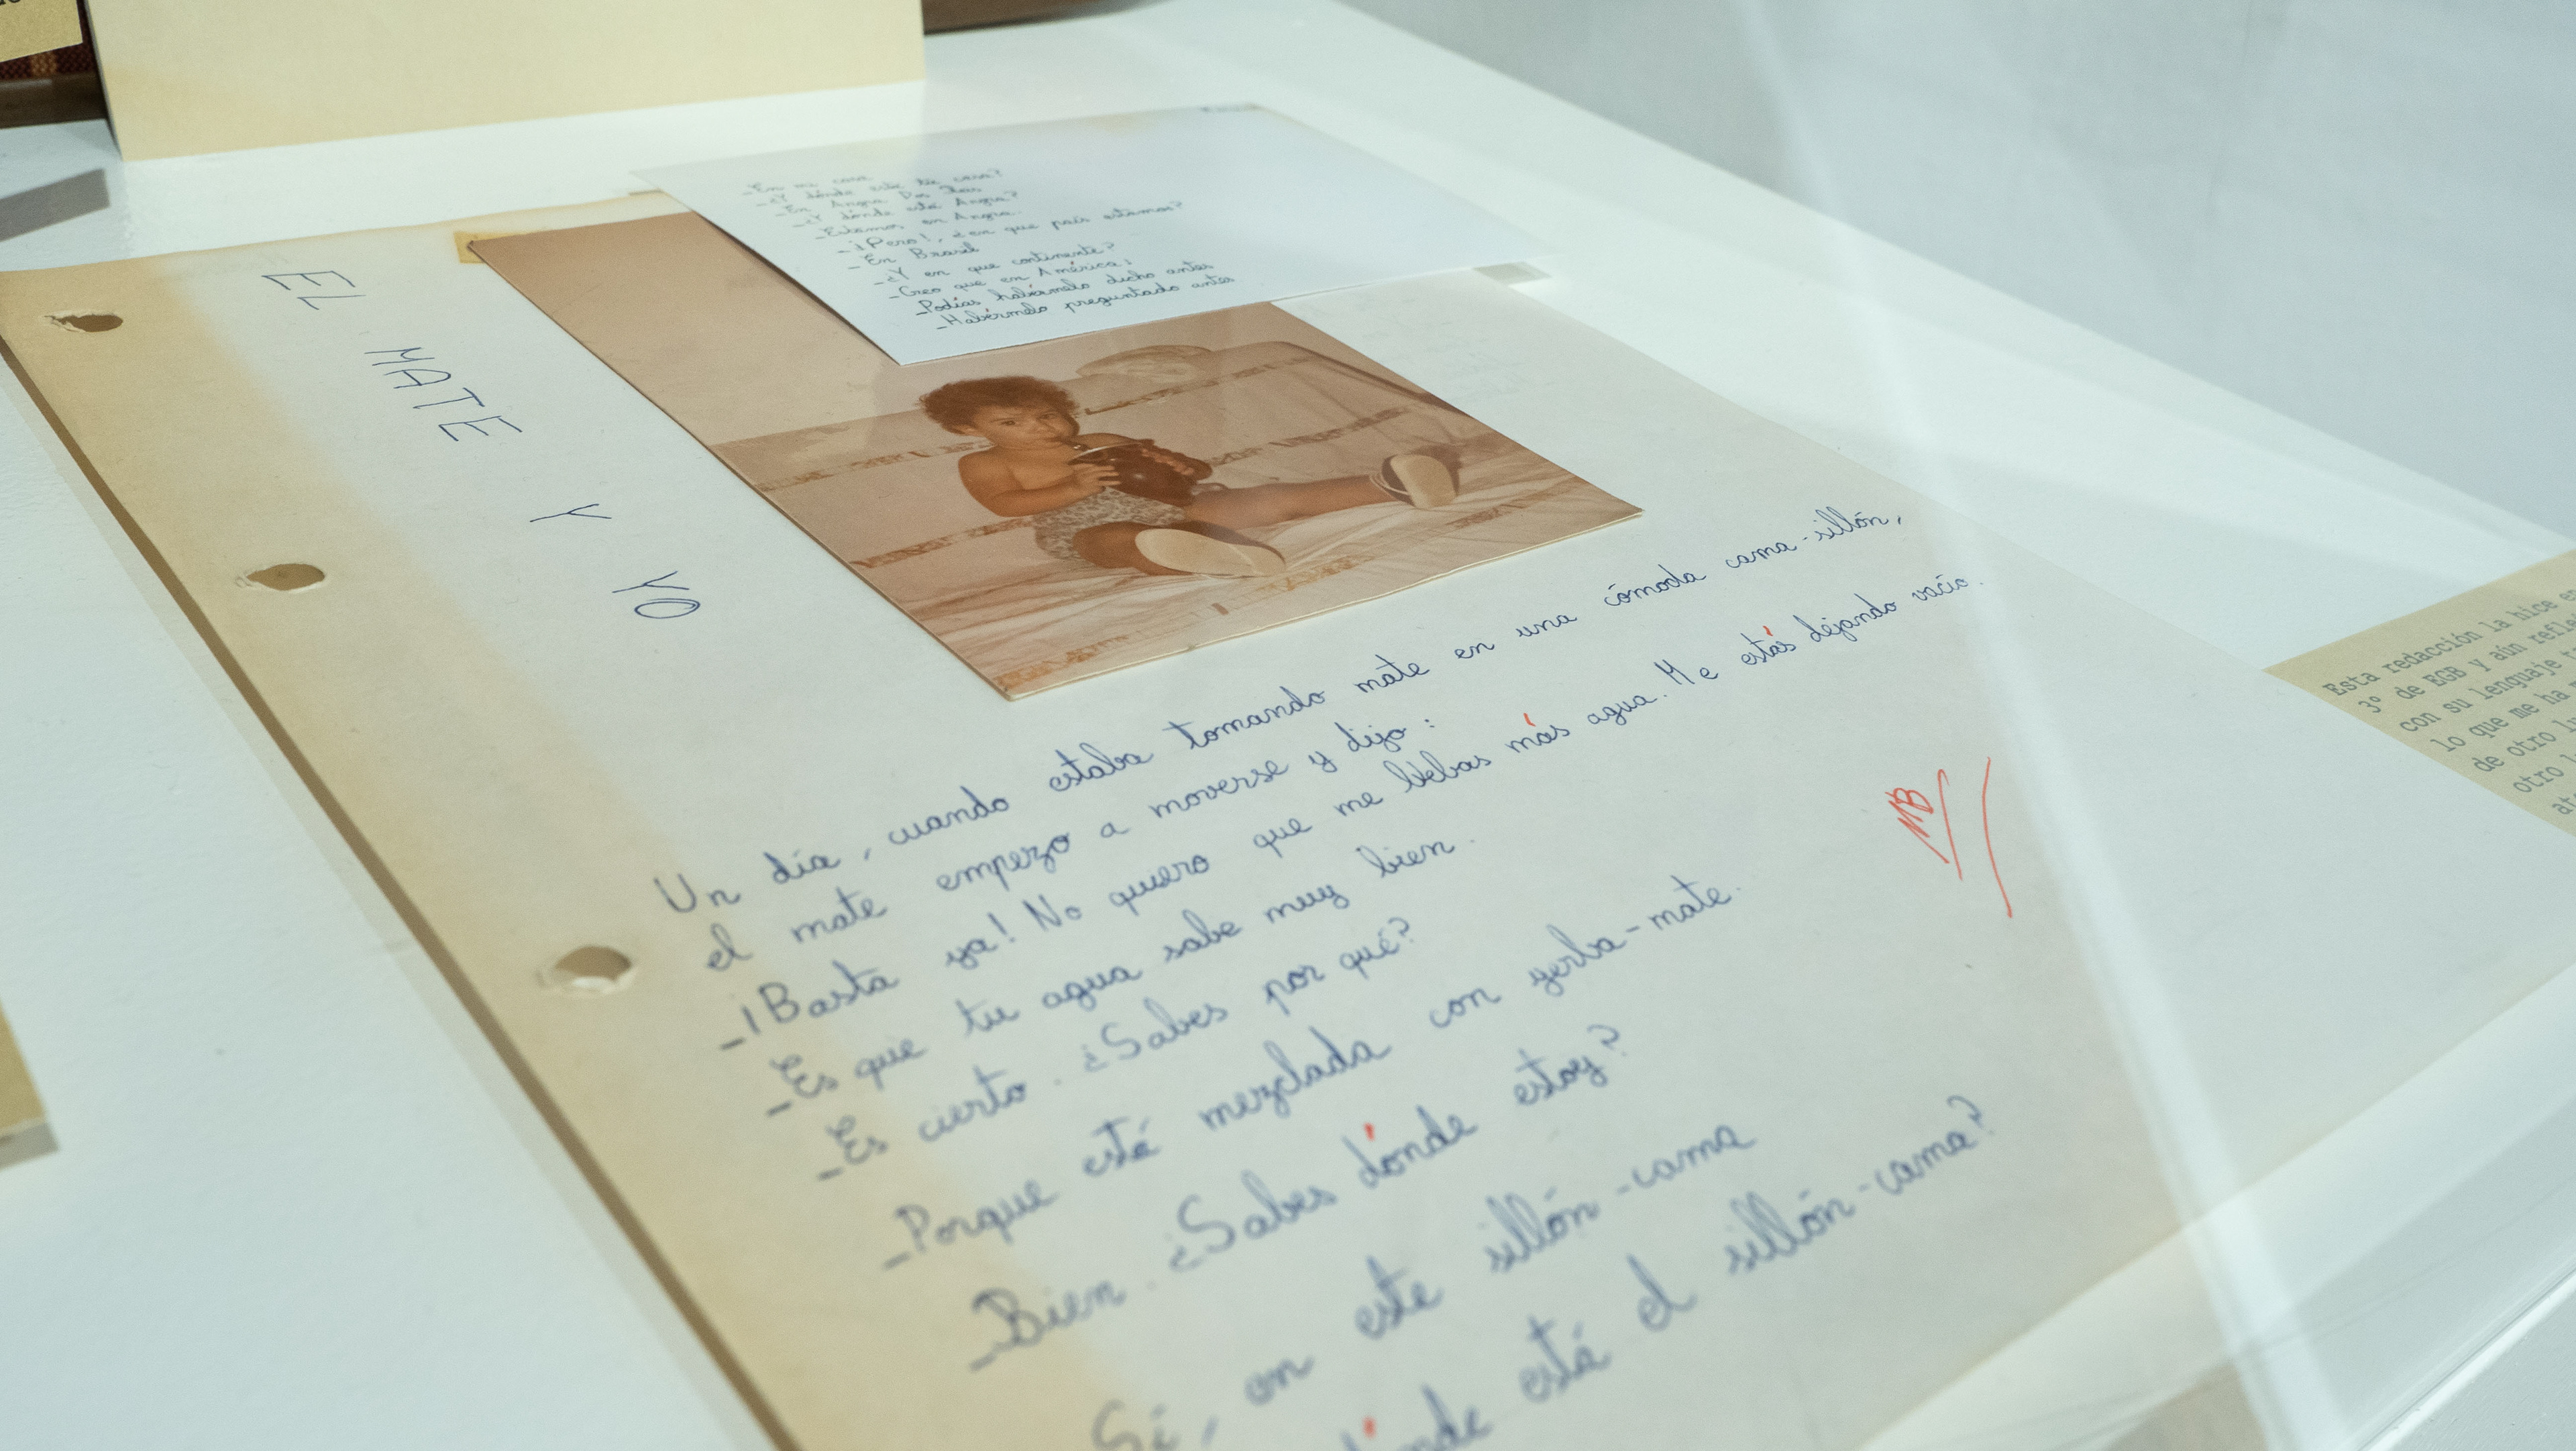 EL MATE Y YO
Un día, cuando estaba tomando mate en una cómoda cama-sillón,
el mate empezo a moverse y dijo:
-¡Basta ya! No quiero que me bebas más agua. Me estás dejando vacío.
-Es que tu agua sabe muy bien.
-Es cierto. ¿Sabes por qué?
-Porque está mezclada con yerba-mate.
-Bien. ¿Sabes dónde estoy?
Sí, en este sillón-cama
dónde está el sillón-cama?
MB
-En mi casa
-¿Y dónde está tu casa?
-En Angra Dos Reis
-¿Y dónde está Angra?
-Estamos en Angra.
-¡Pero!, ¿en que país estamos?
-En Brasil
-¿Y en que continente?
-Creo que en América;
-Podías habérmelo dicho antes
-Habérmelo preguntado antes
Esta redacción la hice
3º de EGB y aún
con su lenguaje
lo que me ha
de otro
otro